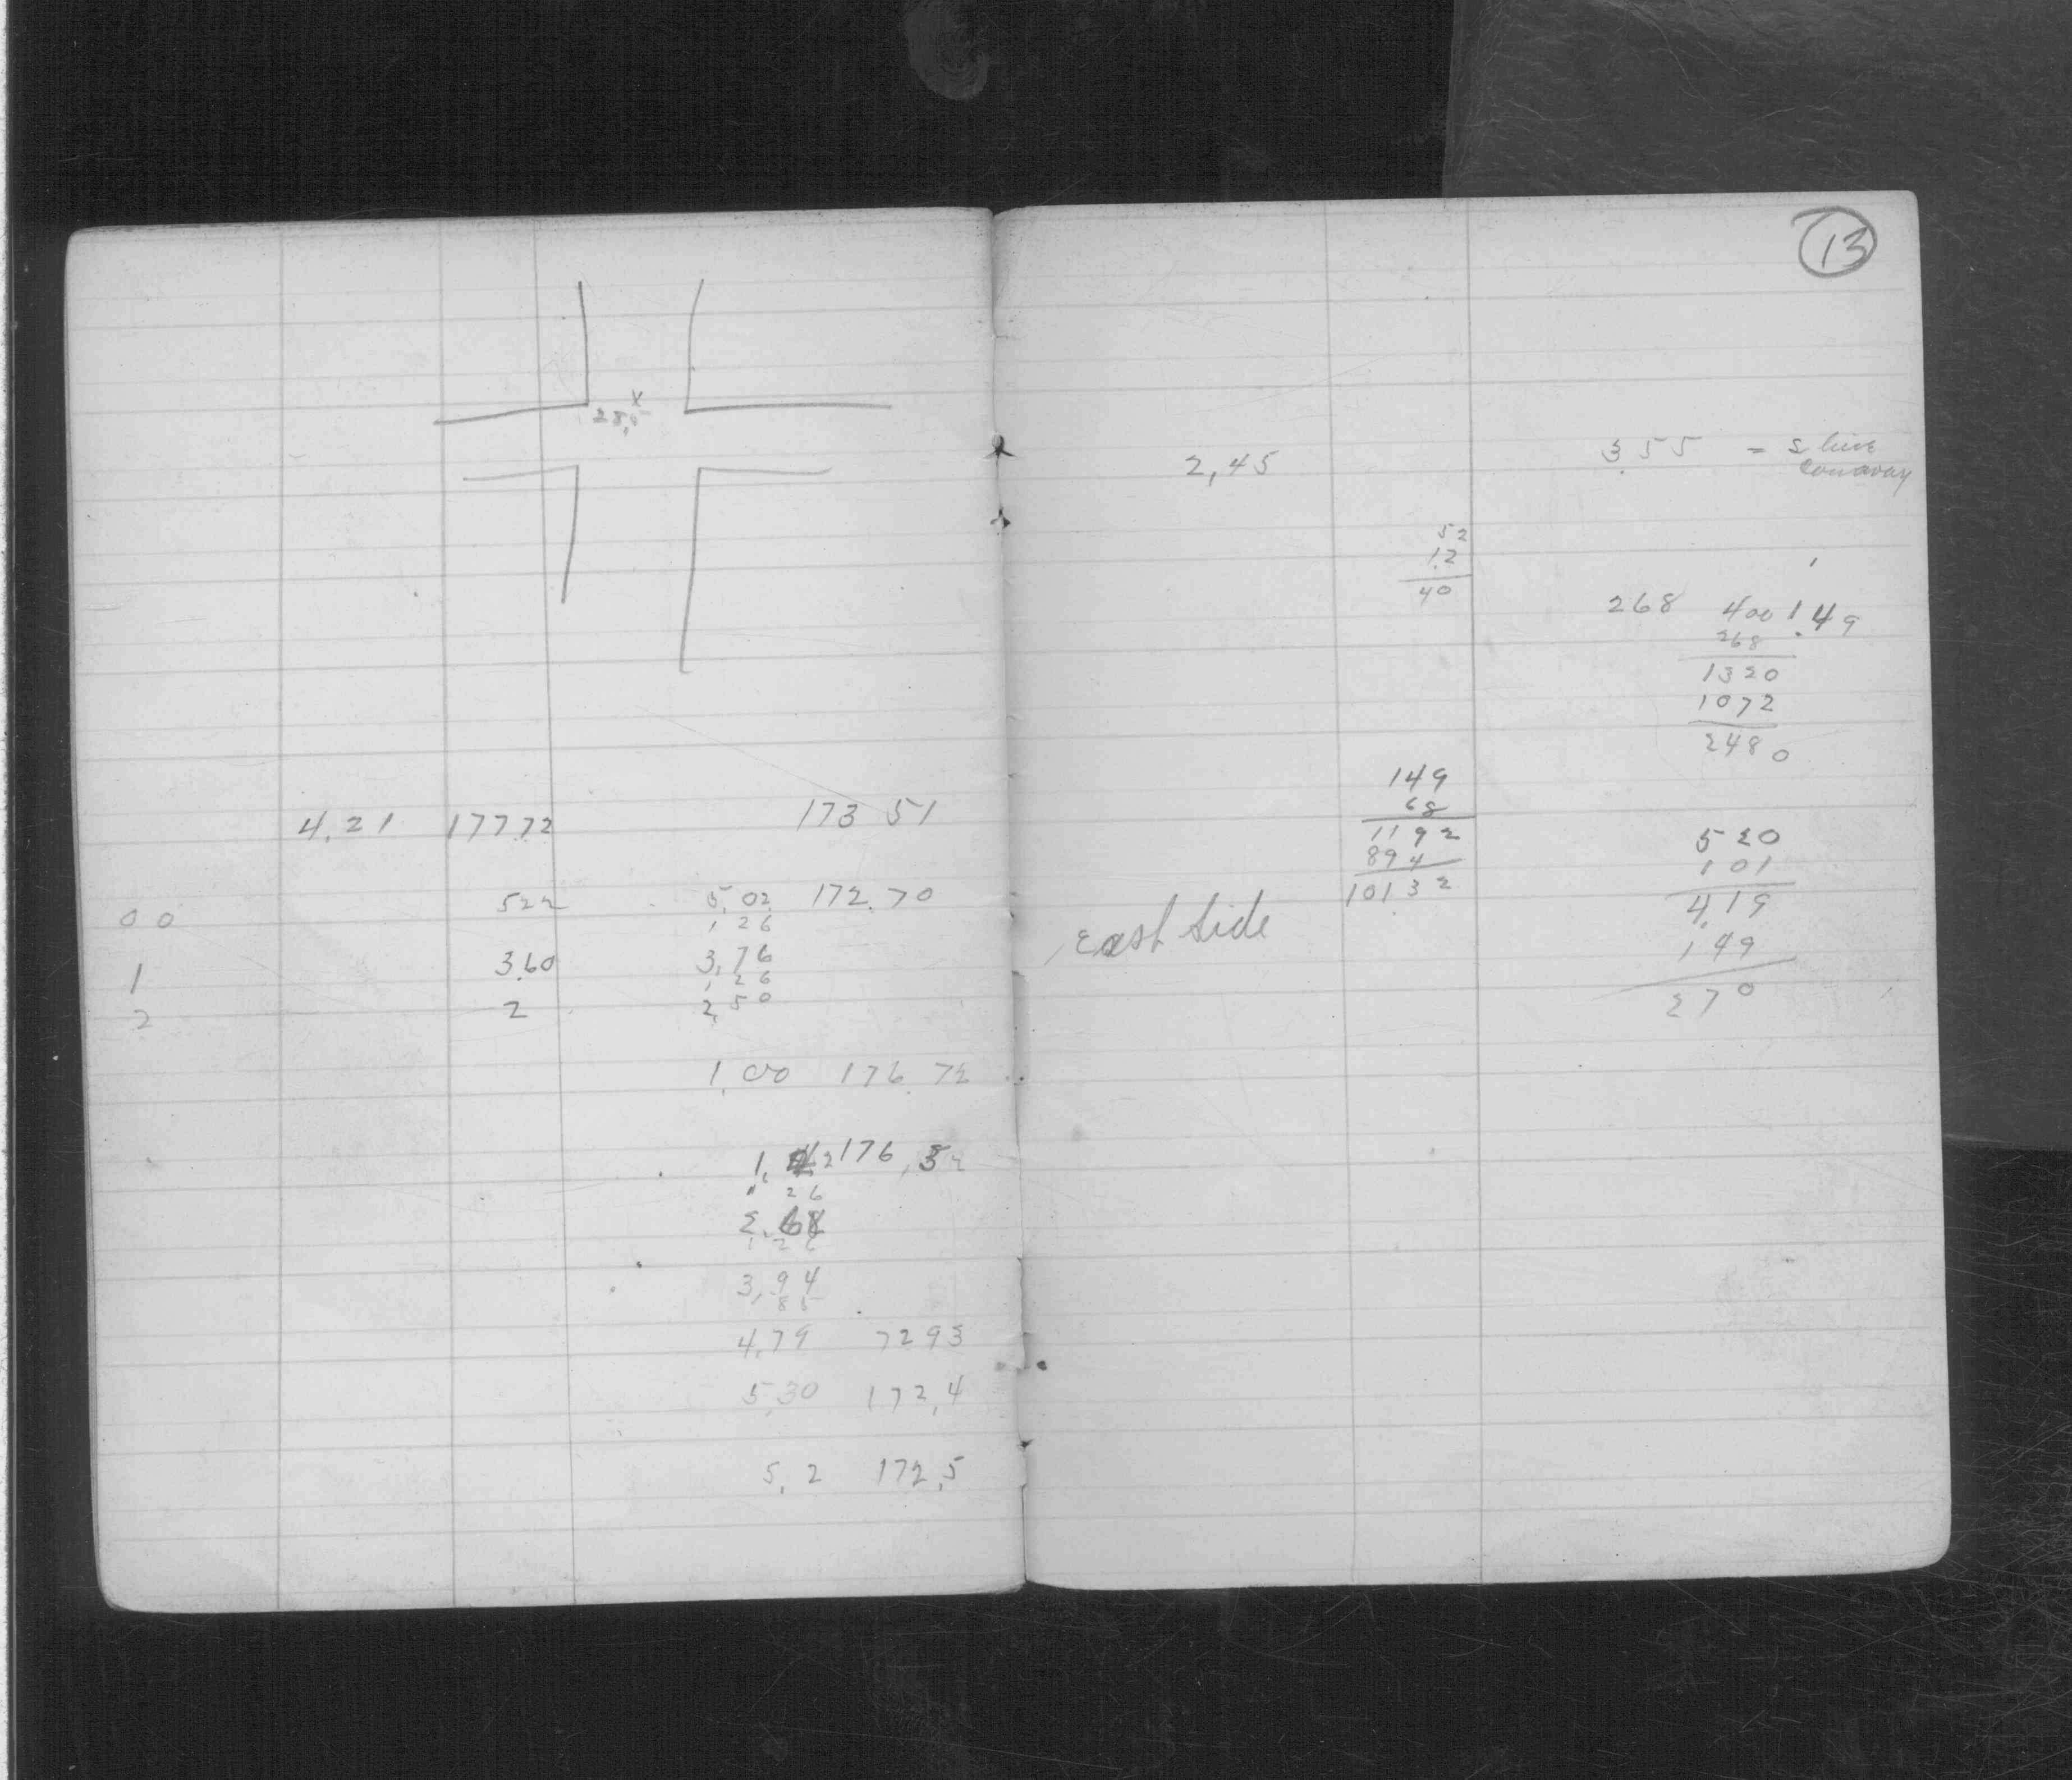 x
28,5
4.21 177.72 173 51
00 522 5,02 172.70
1,26
1 3.60 3,76
1,26
2 2 2,50
1,00 176 72
1, 2 176,52
1 26
2.68
1 26
3,94
85
4,79 7293
5,30 172,4
5,2 172,5
13
2,45 3.55 = S line
Conaway
52
12
40
268 400 1.49
268
1320
1072
2480
149
68
1192
894
10132
East Side
520
101
4.19
149
270